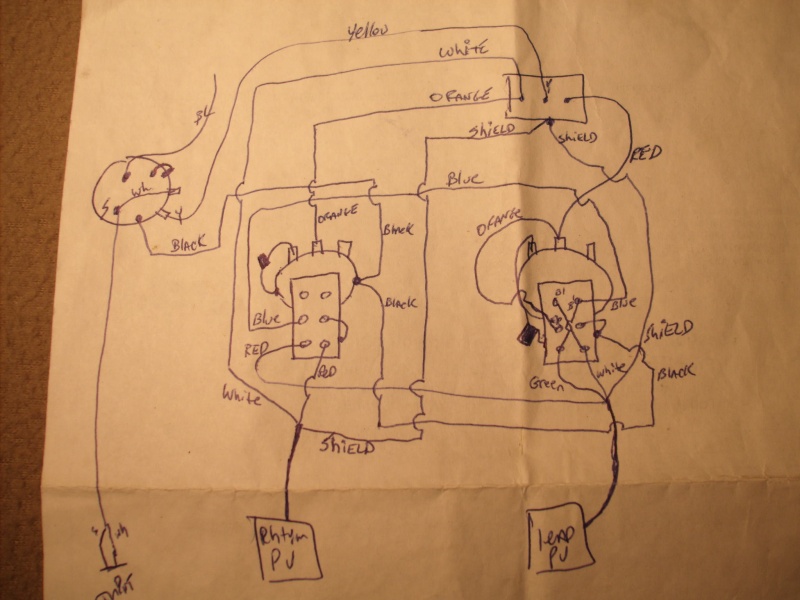 Yellow
WHITE
ORANGE
SHIELD
SHIELD
RED
BL
Wh
Blue
ORANGE
ORANGE
BLACK
BLACK
BLACK
Blue
Blue
RED
RED
SHIELD
White
Green
White
BLACK
SHIELD
Rhtym
PU
LEAD
PU